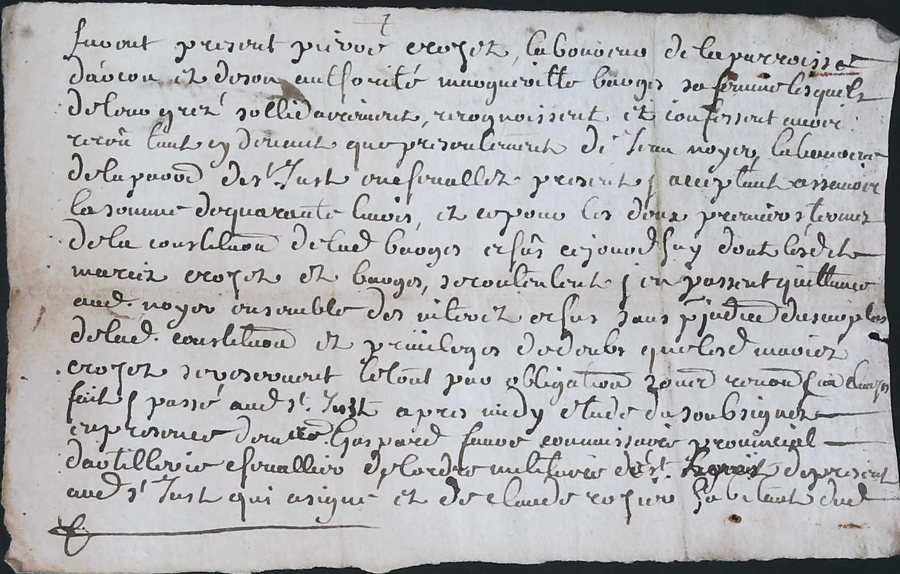 furent present pierre crozet, laboureur de la parroisse
d'arcon et de son authorité margueritte barges sa femme lesquels
de leur grez sollidairement, recognoissent et confessent avoir
receu tant cy devent que presentement de Jean noyer, laboureur
de la parr. de st. Just en chevallet present & acceptant assavoir
la somme de quarante livres, et ce pour les deux premiers termes
de la constitution de lad. barges echus a ce jourd huy dont lesdit
mariez crozet et barges, se contentent & en passent quittance
aud. noyer ensemble des interet echus sans prejudice du surplus
de lad. constitution et privileges de doubs que lesd. mariez
crozet se reservent le tout par obligation soumd renond
fait & passé aud st. Just apres midy etude du soubsigné
en presence de Gaspard commissaire provincial
d'artillerie chevallier de l'ordre militaire de st. de present
aud st Just qui a signé et de claude rozier habitant dud